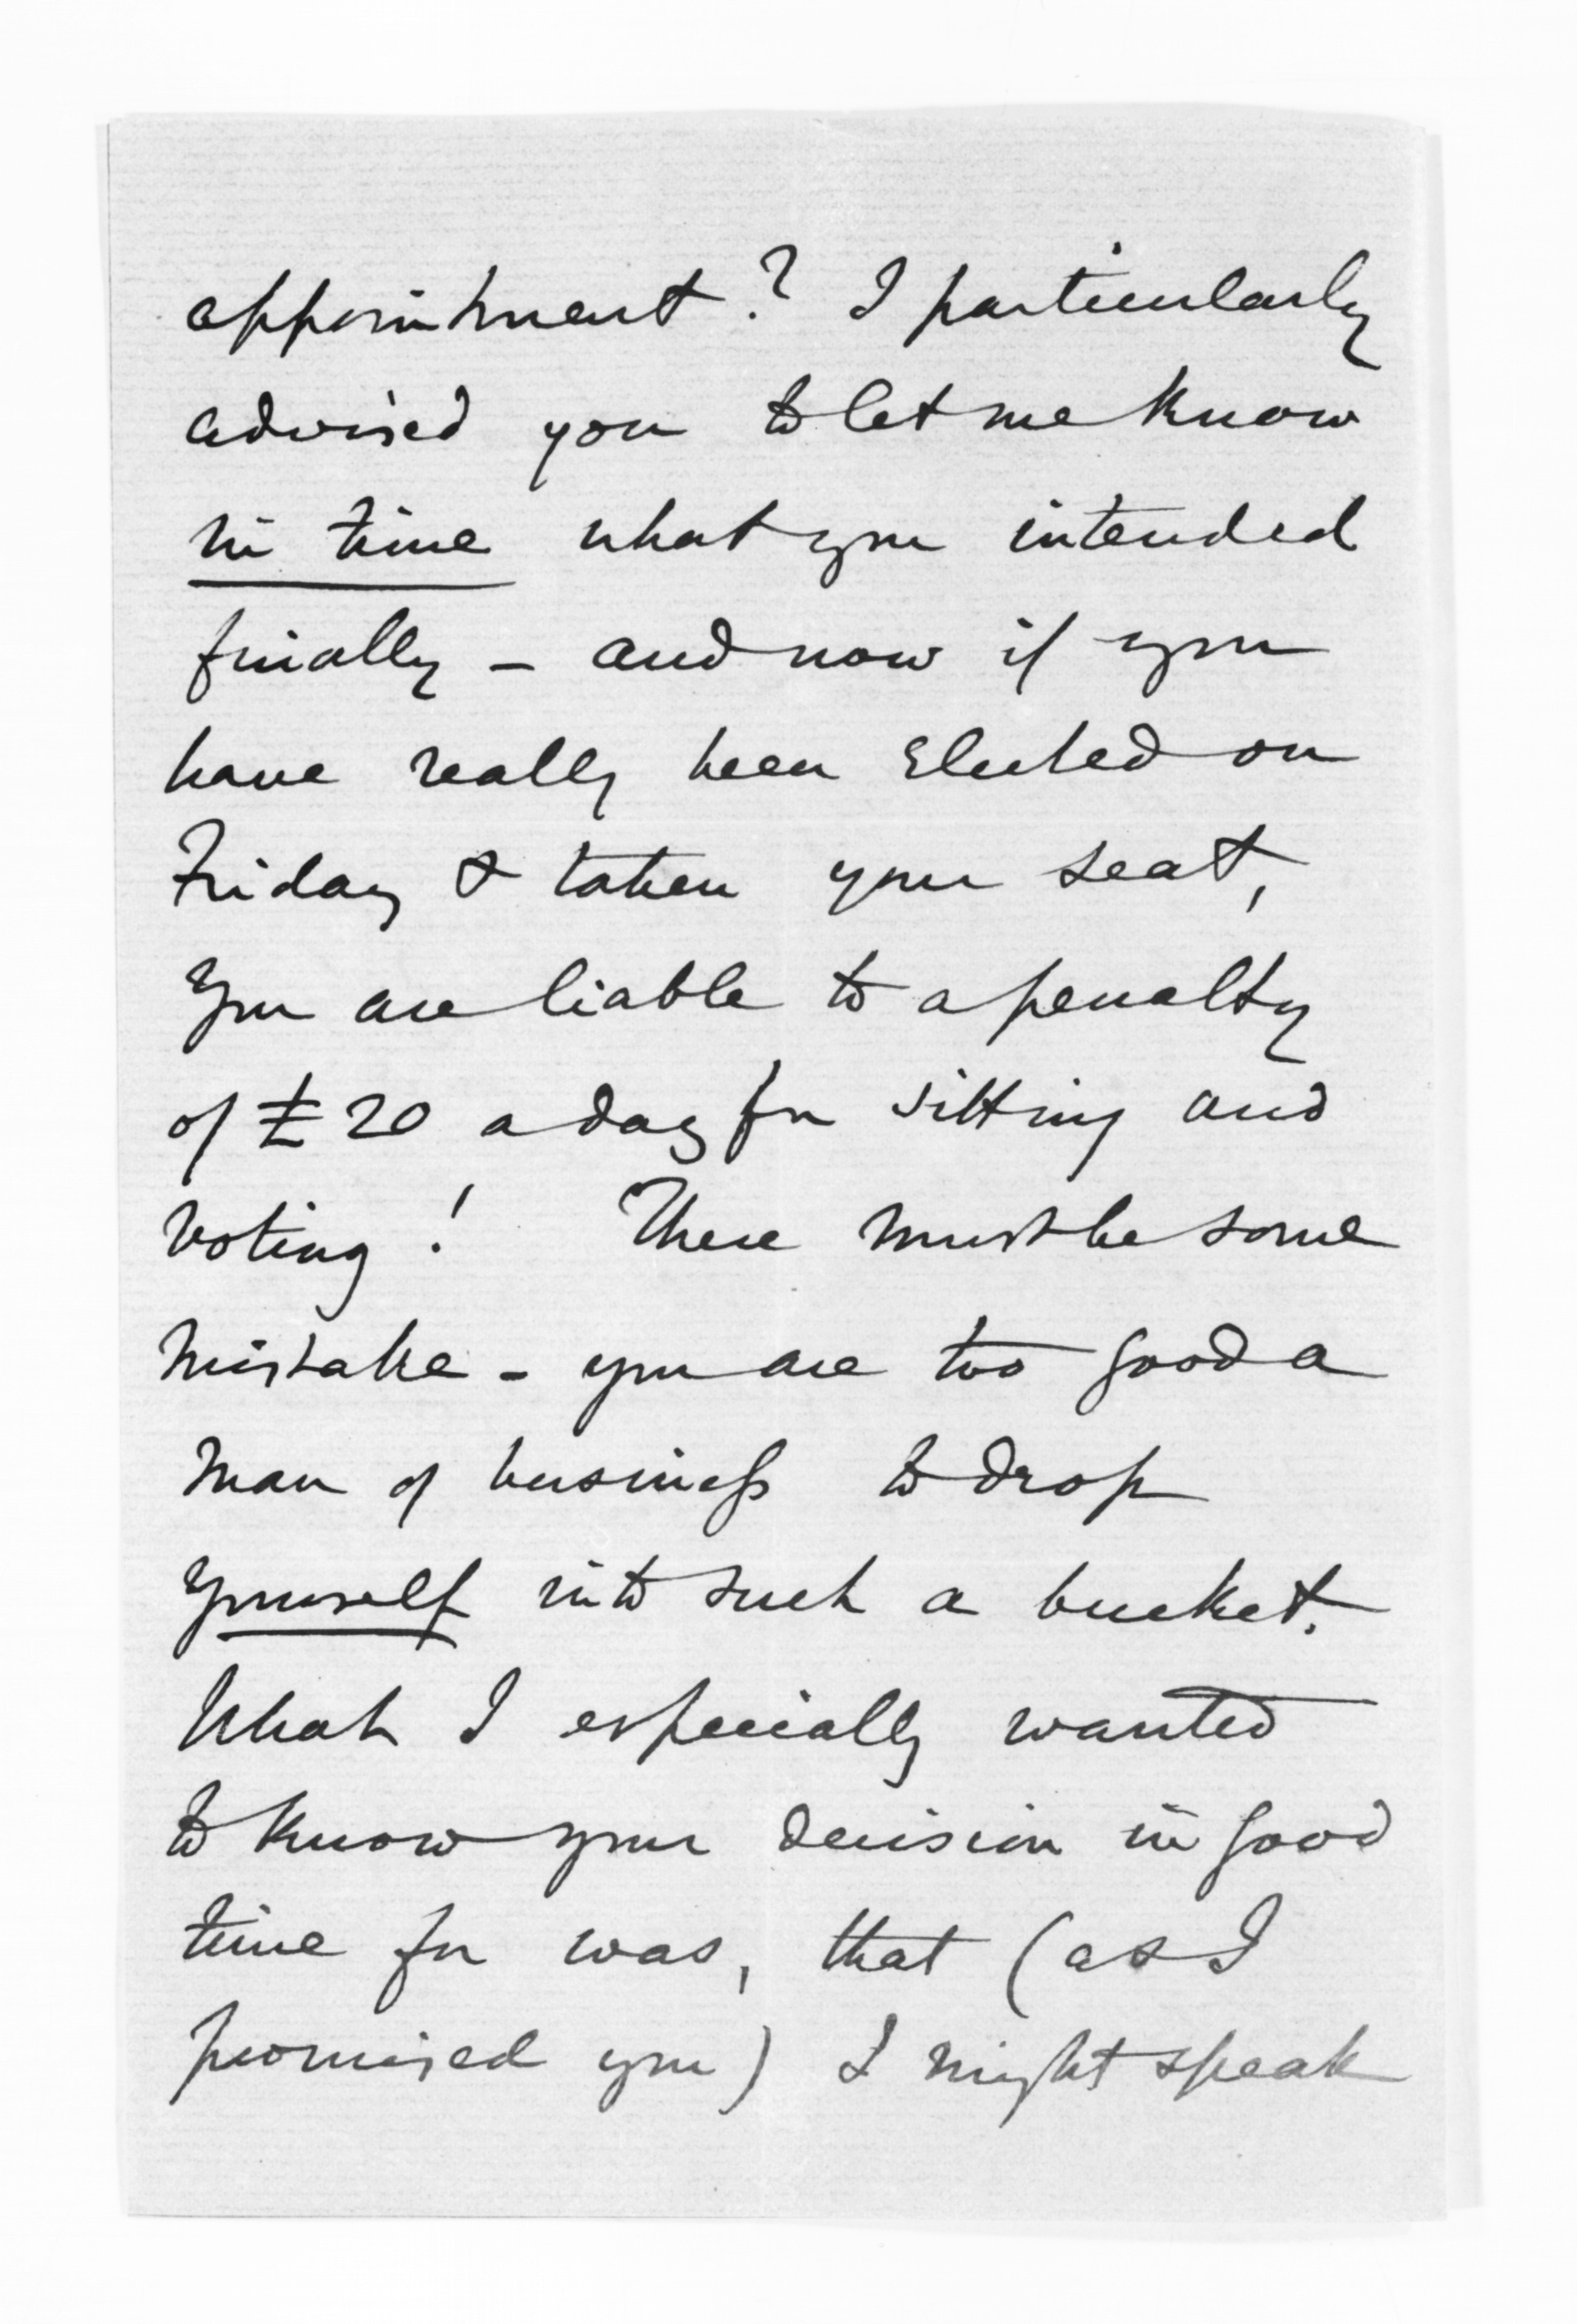 appointment? I particularly
advised you to let me know
in time what you intended
finally - and now if you
have really been elected on
Friday & taken your seat,
you are liable to a penalty
of £20 a day for sitting and
voting! There must be some
mistake - you are too good a
man of business to drop
yourself into such a bucket.
What I especially wanted
to know your decision in good
time for was, that (as I
promised you) I might speak